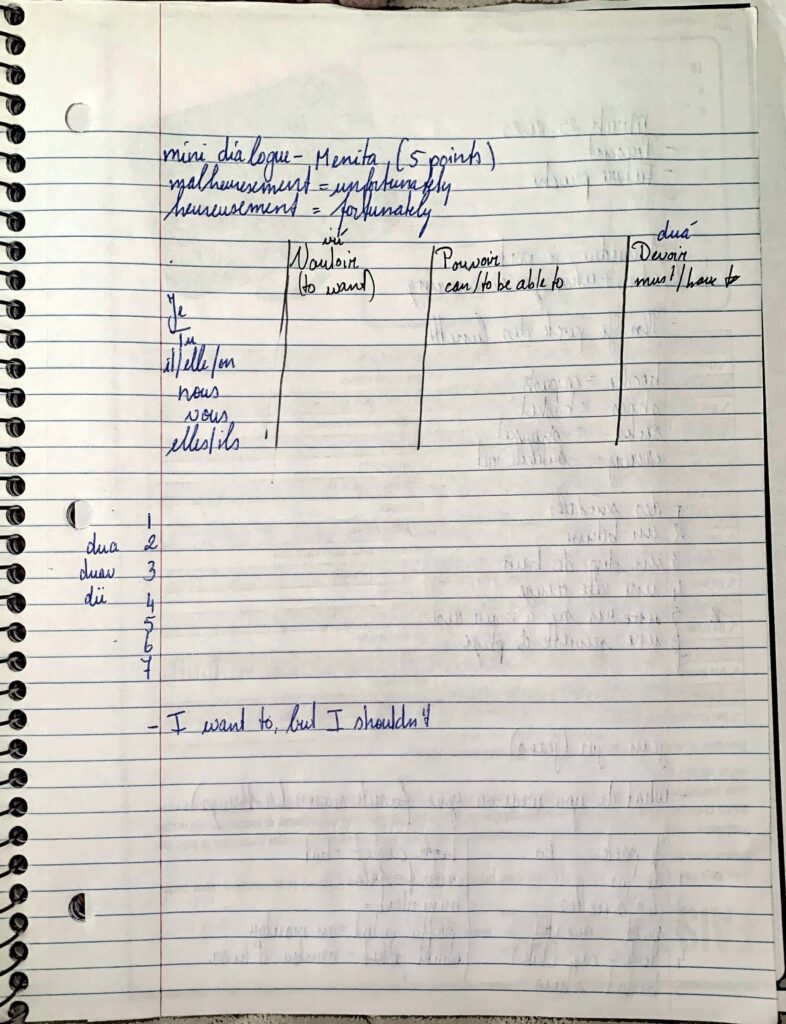 mini dialogue - Menita (5 points)
malheuresement = unfortunately
heureusement = fortunately
duá
Vouloir Pouvoir Devoir
(to want) can/to be able to must/have to
Je
Tu
il/elle/on
nous
vous
elles/ils
1
dua 2
3
dü 4
5
6
7
- I want to, but I shouldn't